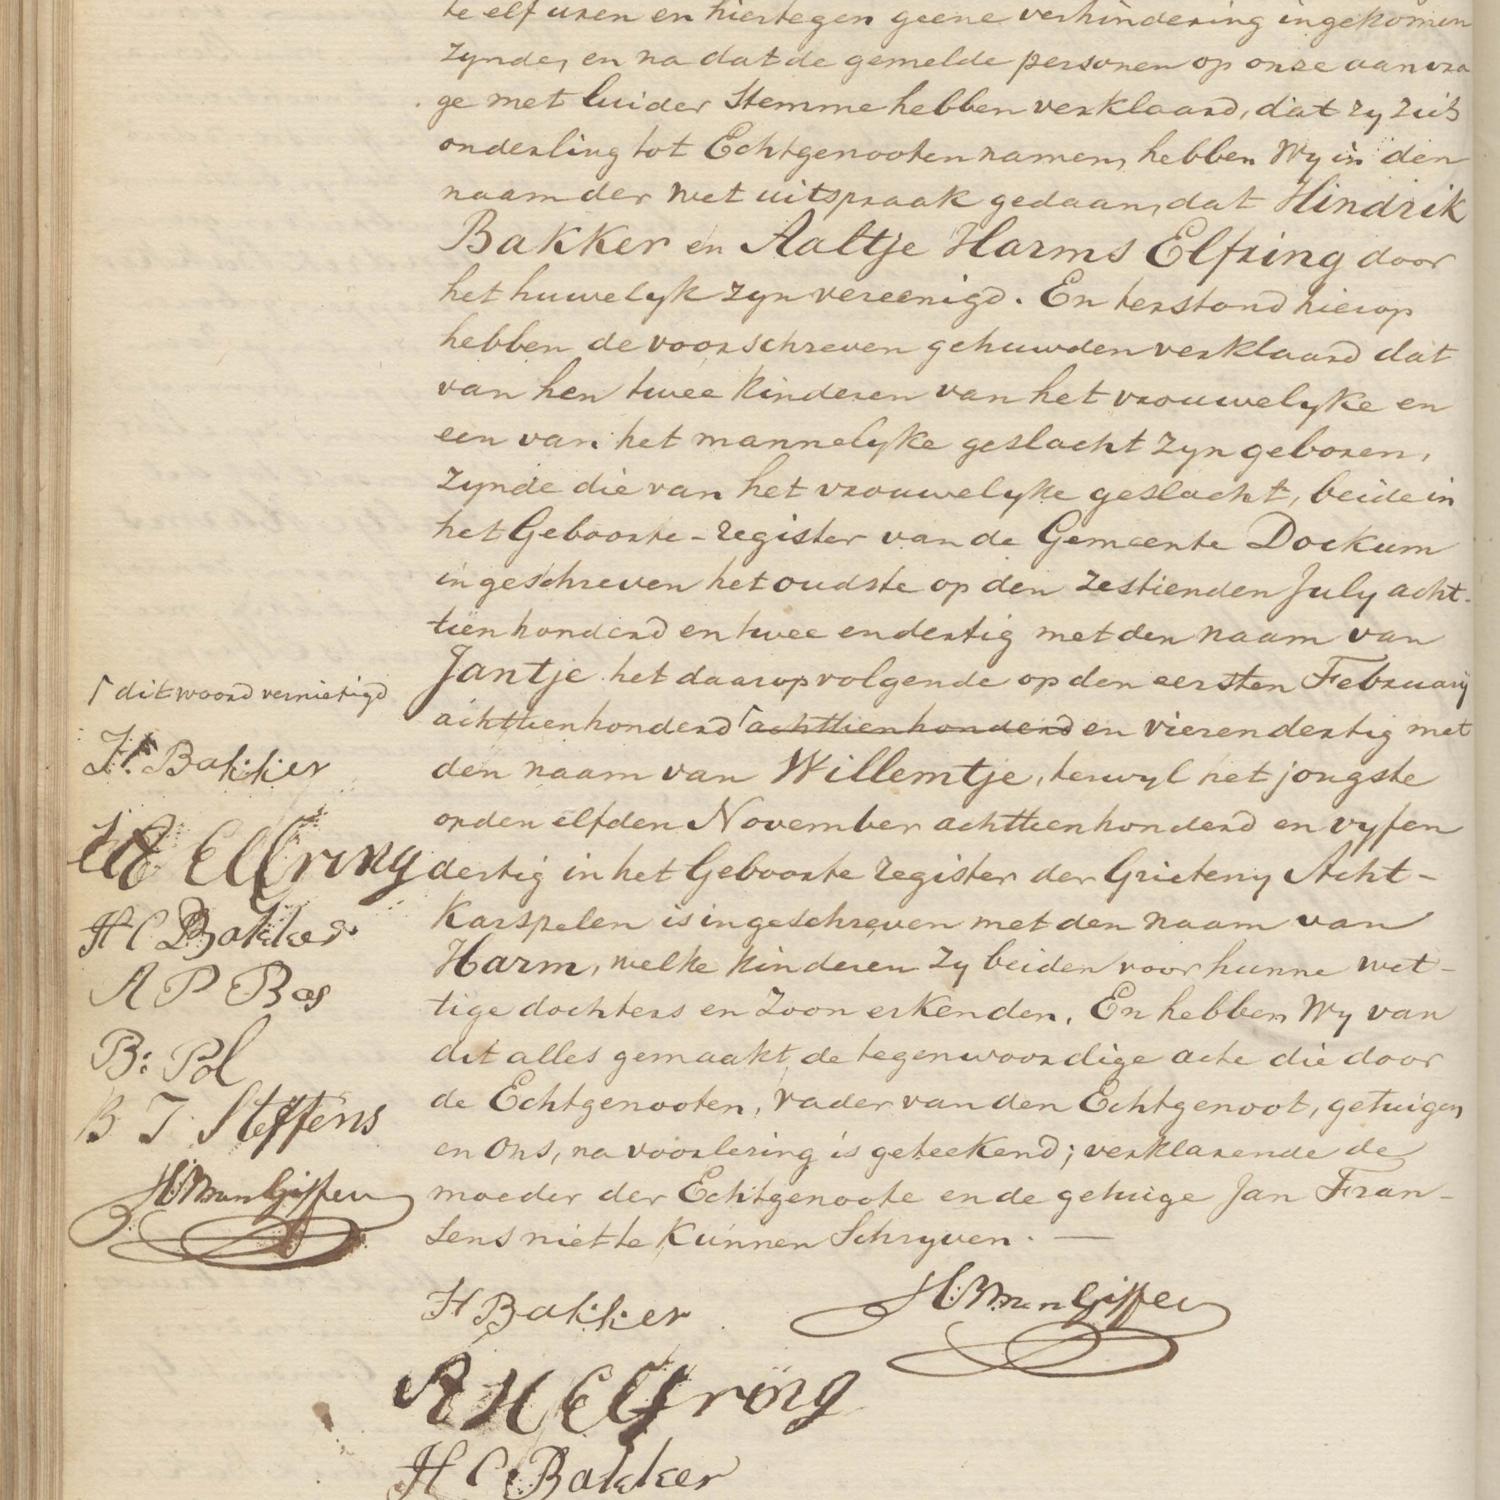 te elf uren en hiertegen geene verhindering ingekomen
zynde, en na dat de gemelde personen op onze aanvra
ge met luider Stemme hebben verklaard, dat zy zich
onderling tot Echtgenooten namen, hebben Wy in den
naam der Wet uitspraak gedaan, dat Hindrik
Bakker en Aaltje Harms Elfring door
het huwelyk zyn vereenigd. En terstond hierop
hebben de voorschreven gehuwden verklaard dat
van hen twee kinderen van het vrouwelyke en
een van het mannelyke geslacht zyn geboren,
zynde die van het vrouwelyke geslacht, beide in
het Geboorte-register van de Gemeente Dockum
ingeschreven het oudste op den zestienden July acht-
tien honderd en twee en dertig met den naam van
Jantje het daaropvolgende op den eersten February
achttienhonderd ⌈achttienhonderd en vierendertig met
den naam van Willemtje, terwyl het jongste
op den elfden November achttienhonderd en vyf en
dertig in het Geboorte register der Grieteny Acht-
Karspelen is ingeschreven met den naam van
Harm, welke kinderen zy beiden voor hunne wet-
tige dochters en zoon erkenden. En hebben Wy van
dit alles gemaakt de tegenwoordige acte die door
de Echtgenooten, vader van den Echtgenoot, getuigen
en Ons, na voorlezing is geteekend; verklarende de
moeder der Echtgenoote en de getuige Jan Fran-
sens niet te kunnen Schryven. —
⌈ dit woord vernietigd
H. Bakker
A H Elfring
H C Bakker
A P Bos
B: Pol
B J Steffens
H M van Giffen
H Bakker
H M van Giffen
A H Elfring
H C Bakker